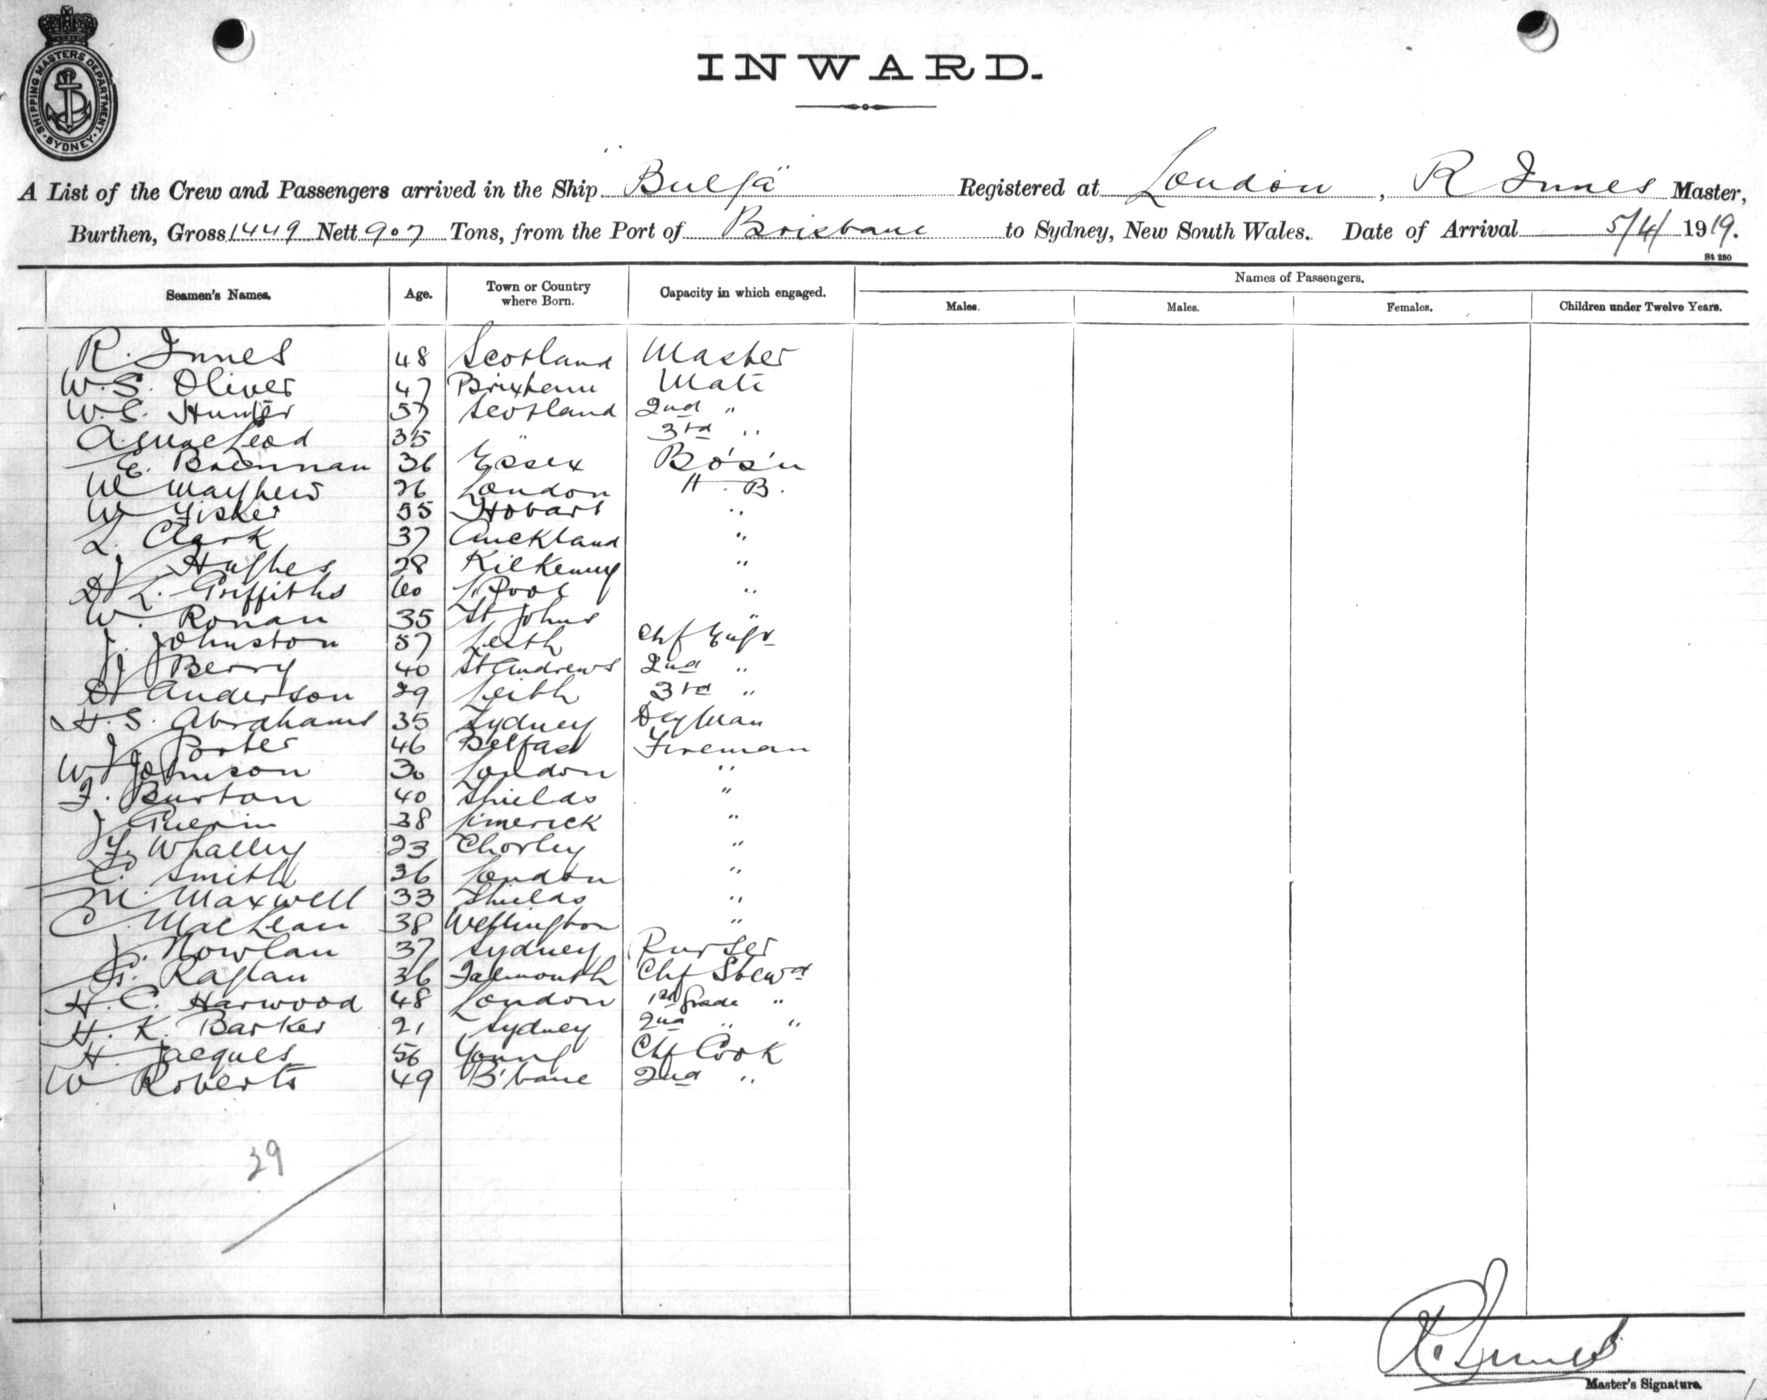 SHIPPING MASTERS DEPARTMENT. SYDNEY.
INWARD.
A List of the Crew and Passengers arrived in the Ship "Bulga" Registered at London, R Innes Master,
Burthen, Gross 1449 Nett 907 Tons, from the Port of Brisbane to Sydney, New South Wales. Date of Arrival 5/4/ 1919.
St 250
Seamen's Names. Age. Town or Country where Born. Capacity in which engaged. Names of Passengers.
Males. Males. Females. Children under Twelve Years.
R. Innes 48 Scotland Master
W. S. Oliver 47 Brixham Mate
W. S. Hunter 57 Scotland 2nd "
A. MacLeod 35 " 3rd "
E. Brennan 36 Essex Bo's'n
W Mayhew 26 London A. B.
W Fisker 55 Hobart "
L. Clark 37 Auckland "
J Hughes 28 Kilkenny "
D L. Griffiths 60 L'Pool "
W. Ronan 35 St Johns "
J. Johnston 57 Leith Chf Engr
J Berry 40 St Andrews 2nd "
D Anderson 29 Leith 3rd "
H. S. Abrahams 35 Sydney Dkyman
J. Porter 46 Belfast Fireman
W Johnson 30 London "
F. Burton 40 Shields "
J Guerin 38 Limerick "
Y. Whalley 23 Chorley "
C. Smith 36 London "
M. Maxwell 33 Shields "
C. MacLean 38 Wellington "
J. Nowlan 37 Sydney Purser
G. Raglan 36 Falmouth Chf Stewd
H. C. Harwood 48 London 1st Grade "
H. K. Barker 21 Sydney 2nd " "
H. Jacques 56 Young Chf Cook
W Roberts 49 B'bane 2nd "
29
R. Innes
Master's Signature.